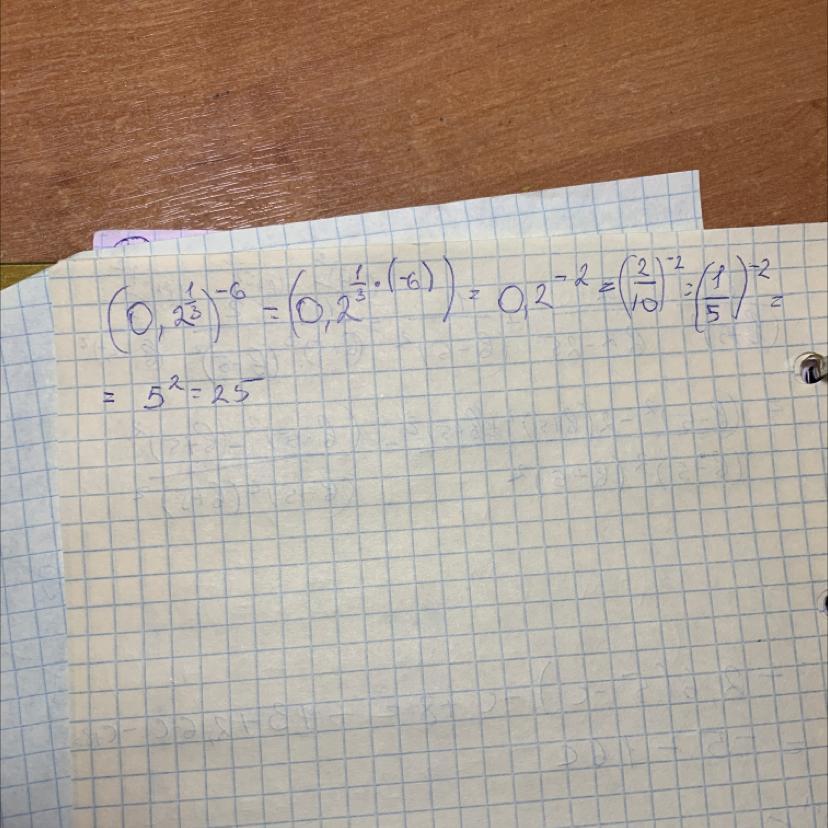 (0,2^{\frac{1}{3}})^{-6} = (0,2^{\frac{1}{3} \cdot (-6)}) = 0,2^{-2} = (\frac{2}{10})^{-2} = (\frac{1}{5})^{-2} =
= 5^2 = 25